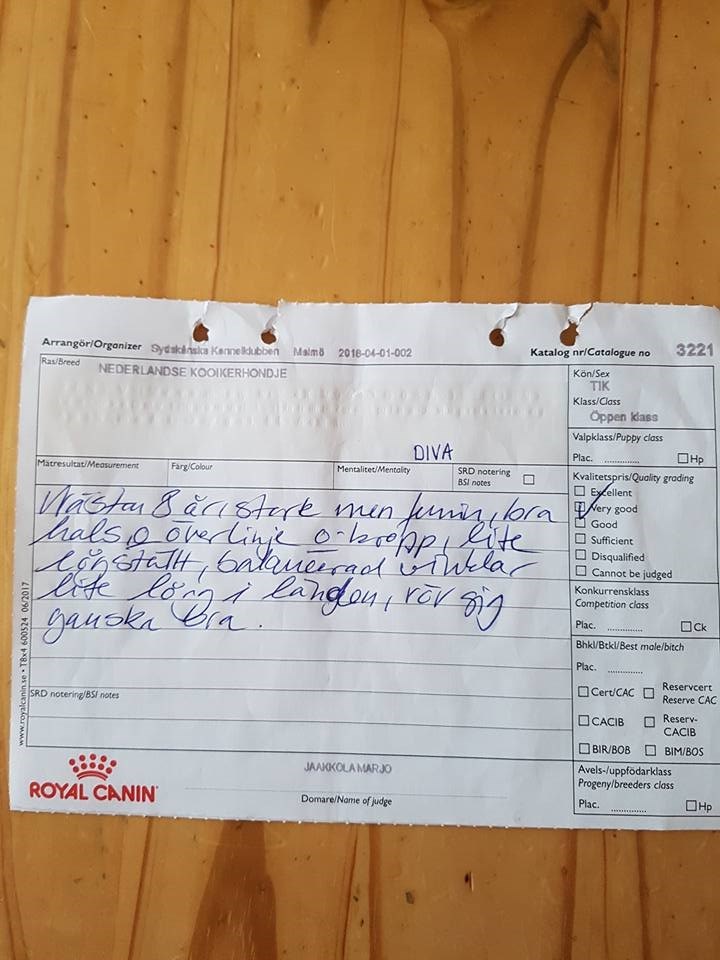 Arrangör/Organizer Sydskånska Kennelklubben Malmö 2018-04-01-002 Katalog nr/Catalogue no 3221
Ras/Breed NEDERLANDSE KOOIKERHONDJE
DIVA
Kön/Sex
TIK
Klass/Class
Öppen klass
Valpklass/Puppy class
Plac. ............. Hp
Mätresultat/Measurement Färg/Colour Mentalitet/Mentality SRD notering
BSI notes
Kvalitetspris/Quality grading
Excellent
Very good
Good
Sufficient
Disqualified
Cannot be judged
Nästan 8 år, stark men feminin, bra
hals o överlinje o kropp, lite
lågställt, balanserad vinklar
lite lång i länden, rör sig
ganska bra.
Konkurrensklass
Competition class
Plac. ............. Ck
Bhkl/Btkl/Best male/bitch
Plac. .............
Cert/CAC Reservcert
Reserve CAC
CACIB Reserv-
CACIB
BIR/BOB BIM/BOS
SRD notering/BSI notes
www.royalcanin.se • TBx4 600524 06/2017
ROYAL CANIN
JAAKKOLA MARJO
Domare/Name of judge
Avels-/uppfödarklass
Progeny/breeders class
Plac. ............. Hp